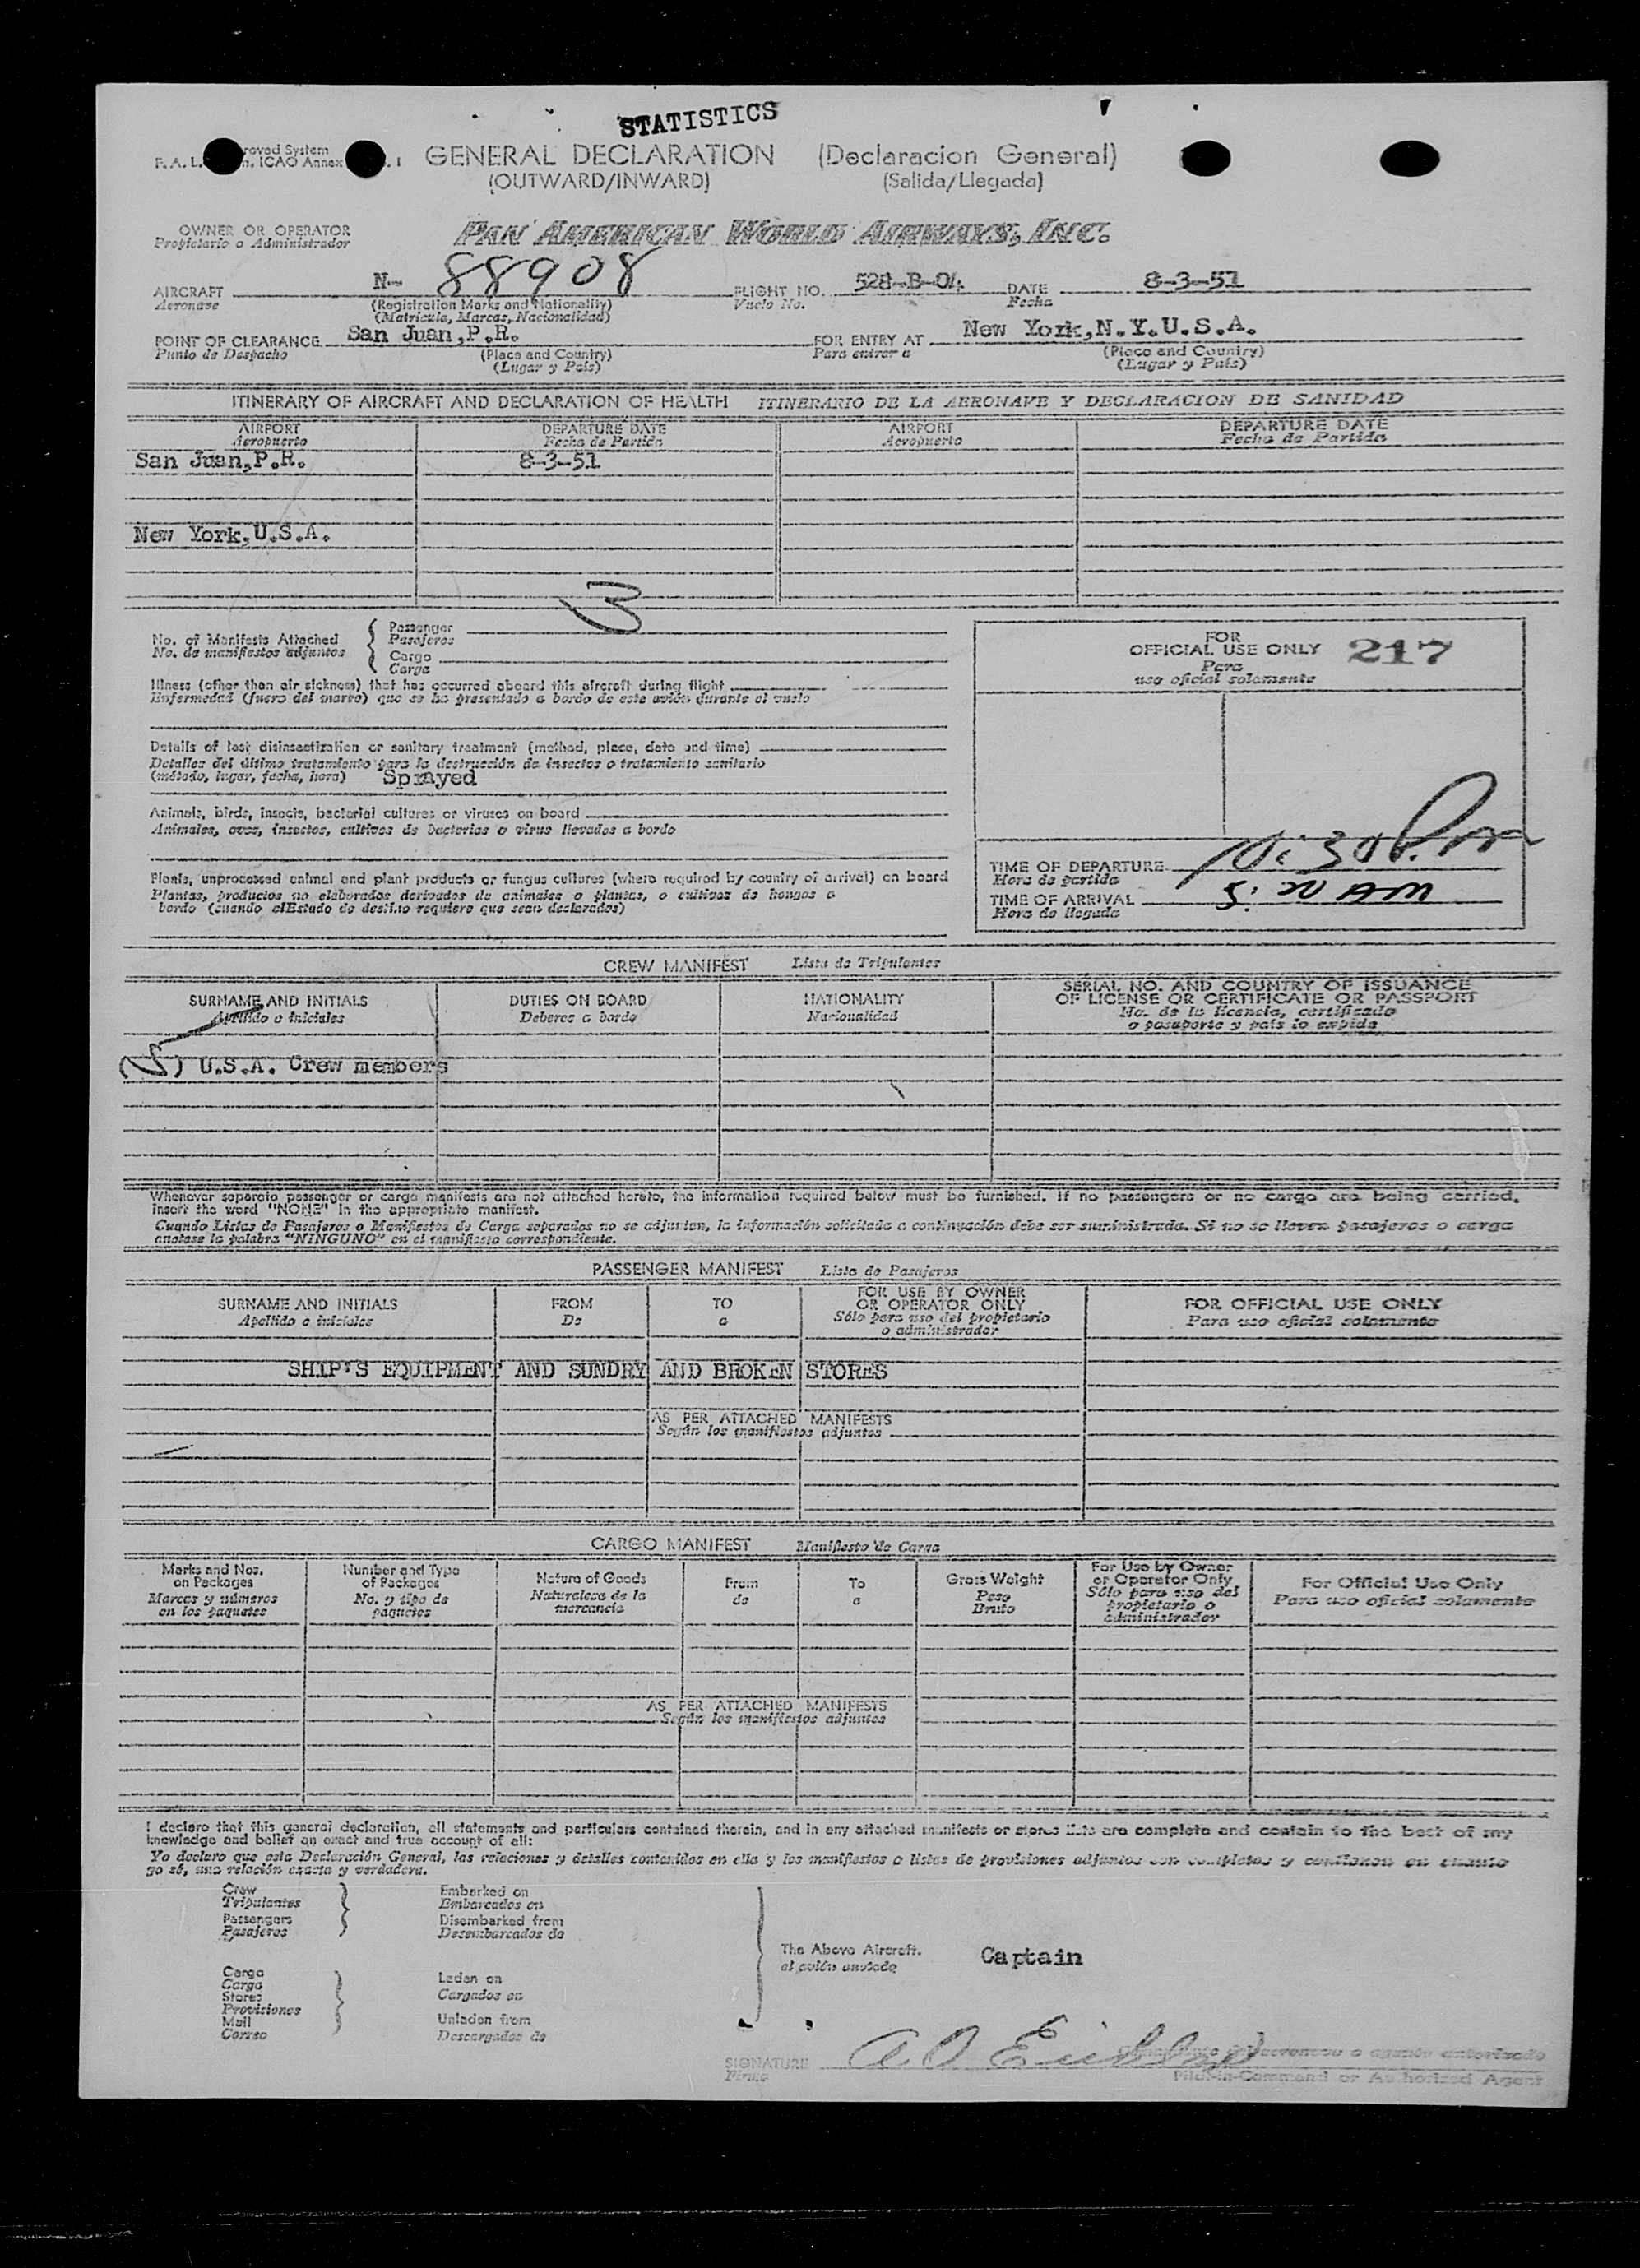 STATISTICS
GENERAL DECLARATION (Declaracion General)
(OUTWARD/INWARD) (Salida/Llegada)
OWNER OR OPERATOR PAN AMERICAN WORLD AIRWAYS, INC.
Propietario o Administrador
AIRCRAFT N- 88908 FLIGHT NO. 528-B-04 DATE 8-3-51
Aeronave (Registration Marks and Nationality) Vuelo No. Fecha
(Matricula, Marcas, Nacionalidad)
POINT OF CLEARANCE San Juan,P.R. FOR ENTRY AT New York,N.Y.U.S.A.
Punto de Despacho (Place and Country) Para entrar a (Place and Country)
(Lugar y País) (Lugar y País)
ITINERARY OF AIRCRAFT AND DECLARATION OF HEALTH ITINERARIO DE LA AERONAVE Y DECLARACION DE SANIDAD
AIRPORT DEPARTURE DATE AIRPORT DEPARTURE DATE
Aeropuerto Fecha de Partida Aeropuerto Fecha de Partida
San Juan,P.R. 8-3-51
New York,U.S.A.
3
No. of Manifests Attached Passenger
No. de manifiestos adjuntos Pasajeros
Cargo
Carga
FOR
OFFICIAL USE ONLY 217
Para
uso oficial solamente
Illness (other than air sickness) that has occurred aboard this aircraft during flight
Enfermedad (fuera del mareo) que se ha presentado a bordo de este avión durante el vuelo
Details of last disinsectization or sanitary treatment (method, place, date and time)
Detalles del último tratamiento para la destrucción de insectos o tratamiento sanitario
(método, lugar, fecha, hora) Sprayed
Animals, birds, insects, bacterial cultures or viruses on board
Animales, aves, insectos, cultivos de bacterias o virus llevados a bordo
Plants, unprocessed animal and plant products or fungus cultures (where required by country of arrival) on board
Plantas, productos no elaborados derivados de animales o plantas, o cultivos de hongos a
bordo (cuando elEstado de destino requiere que sean declarados)
TIME OF DEPARTURE 10:30 P.m
Hora de partida
TIME OF ARRIVAL 5:20 AM
Hora de llegada
CREW MANIFEST Lista de Tripulantes
SURNAME AND INITIALS DUTIES ON BOARD NATIONALITY SERIAL NO. AND COUNTRY OF ISSUANCE
Apellido o iniciales Deberes a bordo Nacionalidad OF LICENSE OR CERTIFICATE OR PASSPORT
No. de la licencia, certificado
o pasaporte y país lo expide
(5) U.S.A. Crew members
Whenever separate passenger or cargo manifests are not attached hereto, the information required below must be furnished. If no passengers or no cargo are being carried,
insert the word "NONE" in the appropriate manifest.
Cuando Listas de Pasajeros o Manifiestos de Carga separados no se adjuntan, la información solicitada a continuación debe ser suministrada. Si no se llevan pasajeros o carga
anotese la palabra "NINGUNO" en el manifiesto correspondiente.
PASSENGER MANIFEST Lista de Pasajeros
SURNAME AND INITIALS FROM TO FOR USE BY OWNER FOR OFFICIAL USE ONLY
Apellido e iniciales De a OR OPERATOR ONLY Para uso oficial solamente
Sólo para uso del propietario
o administrador
SHIP'S EQUIPMENT AND SUNDRY AND BROKEN STORES
AS PER ATTACHED MANIFESTS
Según los manifiestos adjuntos
CARGO MANIFEST Manifiesto de Carga
Marks and Nos. on Packages
Marcas y números en los paquetes
Number and Type of Packages
No. y tipo de paquetes
Nature of Goods
Naturaleza de la mercancia
From
de
To
a
Gross Weight
Peso Bruto
For Use by Owner or Operator Only
Sólo para uso del propietario o administrador
For Official Use Only
Para uso oficial solamente
AS PER ATTACHED MANIFESTS
Según los manifiestos adjuntos
I declare that this general declaration, all statements and particulars contained therein, and in any attached manifests or stores lists are complete and contain to the best of my
knowledge and belief an exact and true account of all:
Yo declaro que esta Declaración General, las relaciones y detalles contenidos en ella y los manifiestos o listas de provisiones adjuntos son completos y contienen en cuanto
yo sé, una relación exacta y verdadera.
Crew Embarked on
Tripulantes Embarcados en
Passengers Disembarked from
Pasajeros Desembarcados de
The Above Aircraft. Captain
al avión anotado
Cargo Laden on
Carga Cargados en
Stores
Provisiones
Mail Unladen from
Correo Descargados de
SIGNATURE
Firma
Pilot-in-Command or Authorized Agent